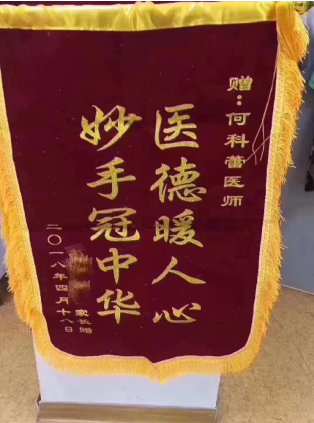 赠:何科蕾医师
医德暖人心
妙手冠中华
家长赠
二〇一八年四月十八日